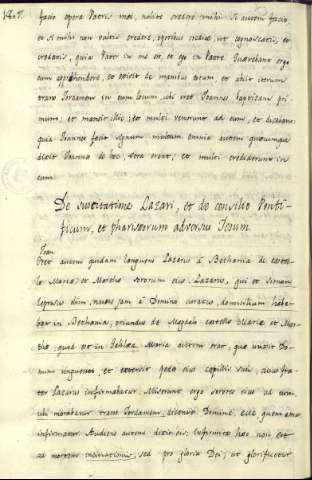 facio opera Patris mei, nolite credere mihi si autem facio,
et si mihi non vultis credere, operibus credite, ut cognoscatis, et
credatis, quia Pater in me est, et ego in Patre. Quærebant ergo
eum apprehendere, et exivit de manibus eorum, et abiit iterum
trans Jordanem in eum locum, ubi erat Joannes baptizans pri-
mum; et mansit illic, et multi venerunt ad eum, et dicebant:
quia Joannes fecit signum nullum omnia autem quæcumque
dixit Joannes de hoc, vera erant, et multi crediderunt in
eum.
De suscitatione Lazari, et de consilio Ponti-
ficum, et phariseorum adversus Jesum.
Joan
Erat autem quidam languens Lazarus a Bethania de castel-
lo Mariæ, et Marthæ sororum eius. Lazarus, qui et Simon
leprosus olim, a Domino curatus, domicilium habe-
bat in Bethania, oriundus de Magdalo castello Mariæ et Mar-
thæ, quod est in Maria autem erat, quæ unxit Do-
minum unguento, et extersit pedes eius capillis suis, cuius fra-
ter Lazarus infirmabatur. Miserunt ergo sorores eius ad eum,
ubi trans Jordanem, dicentes: Domine, ecce quem amas
infirmatur. Audiens autem dixit eis: Infirmitas hæc non est
ad mortem sed pro gloria Dei, ut glorificetur